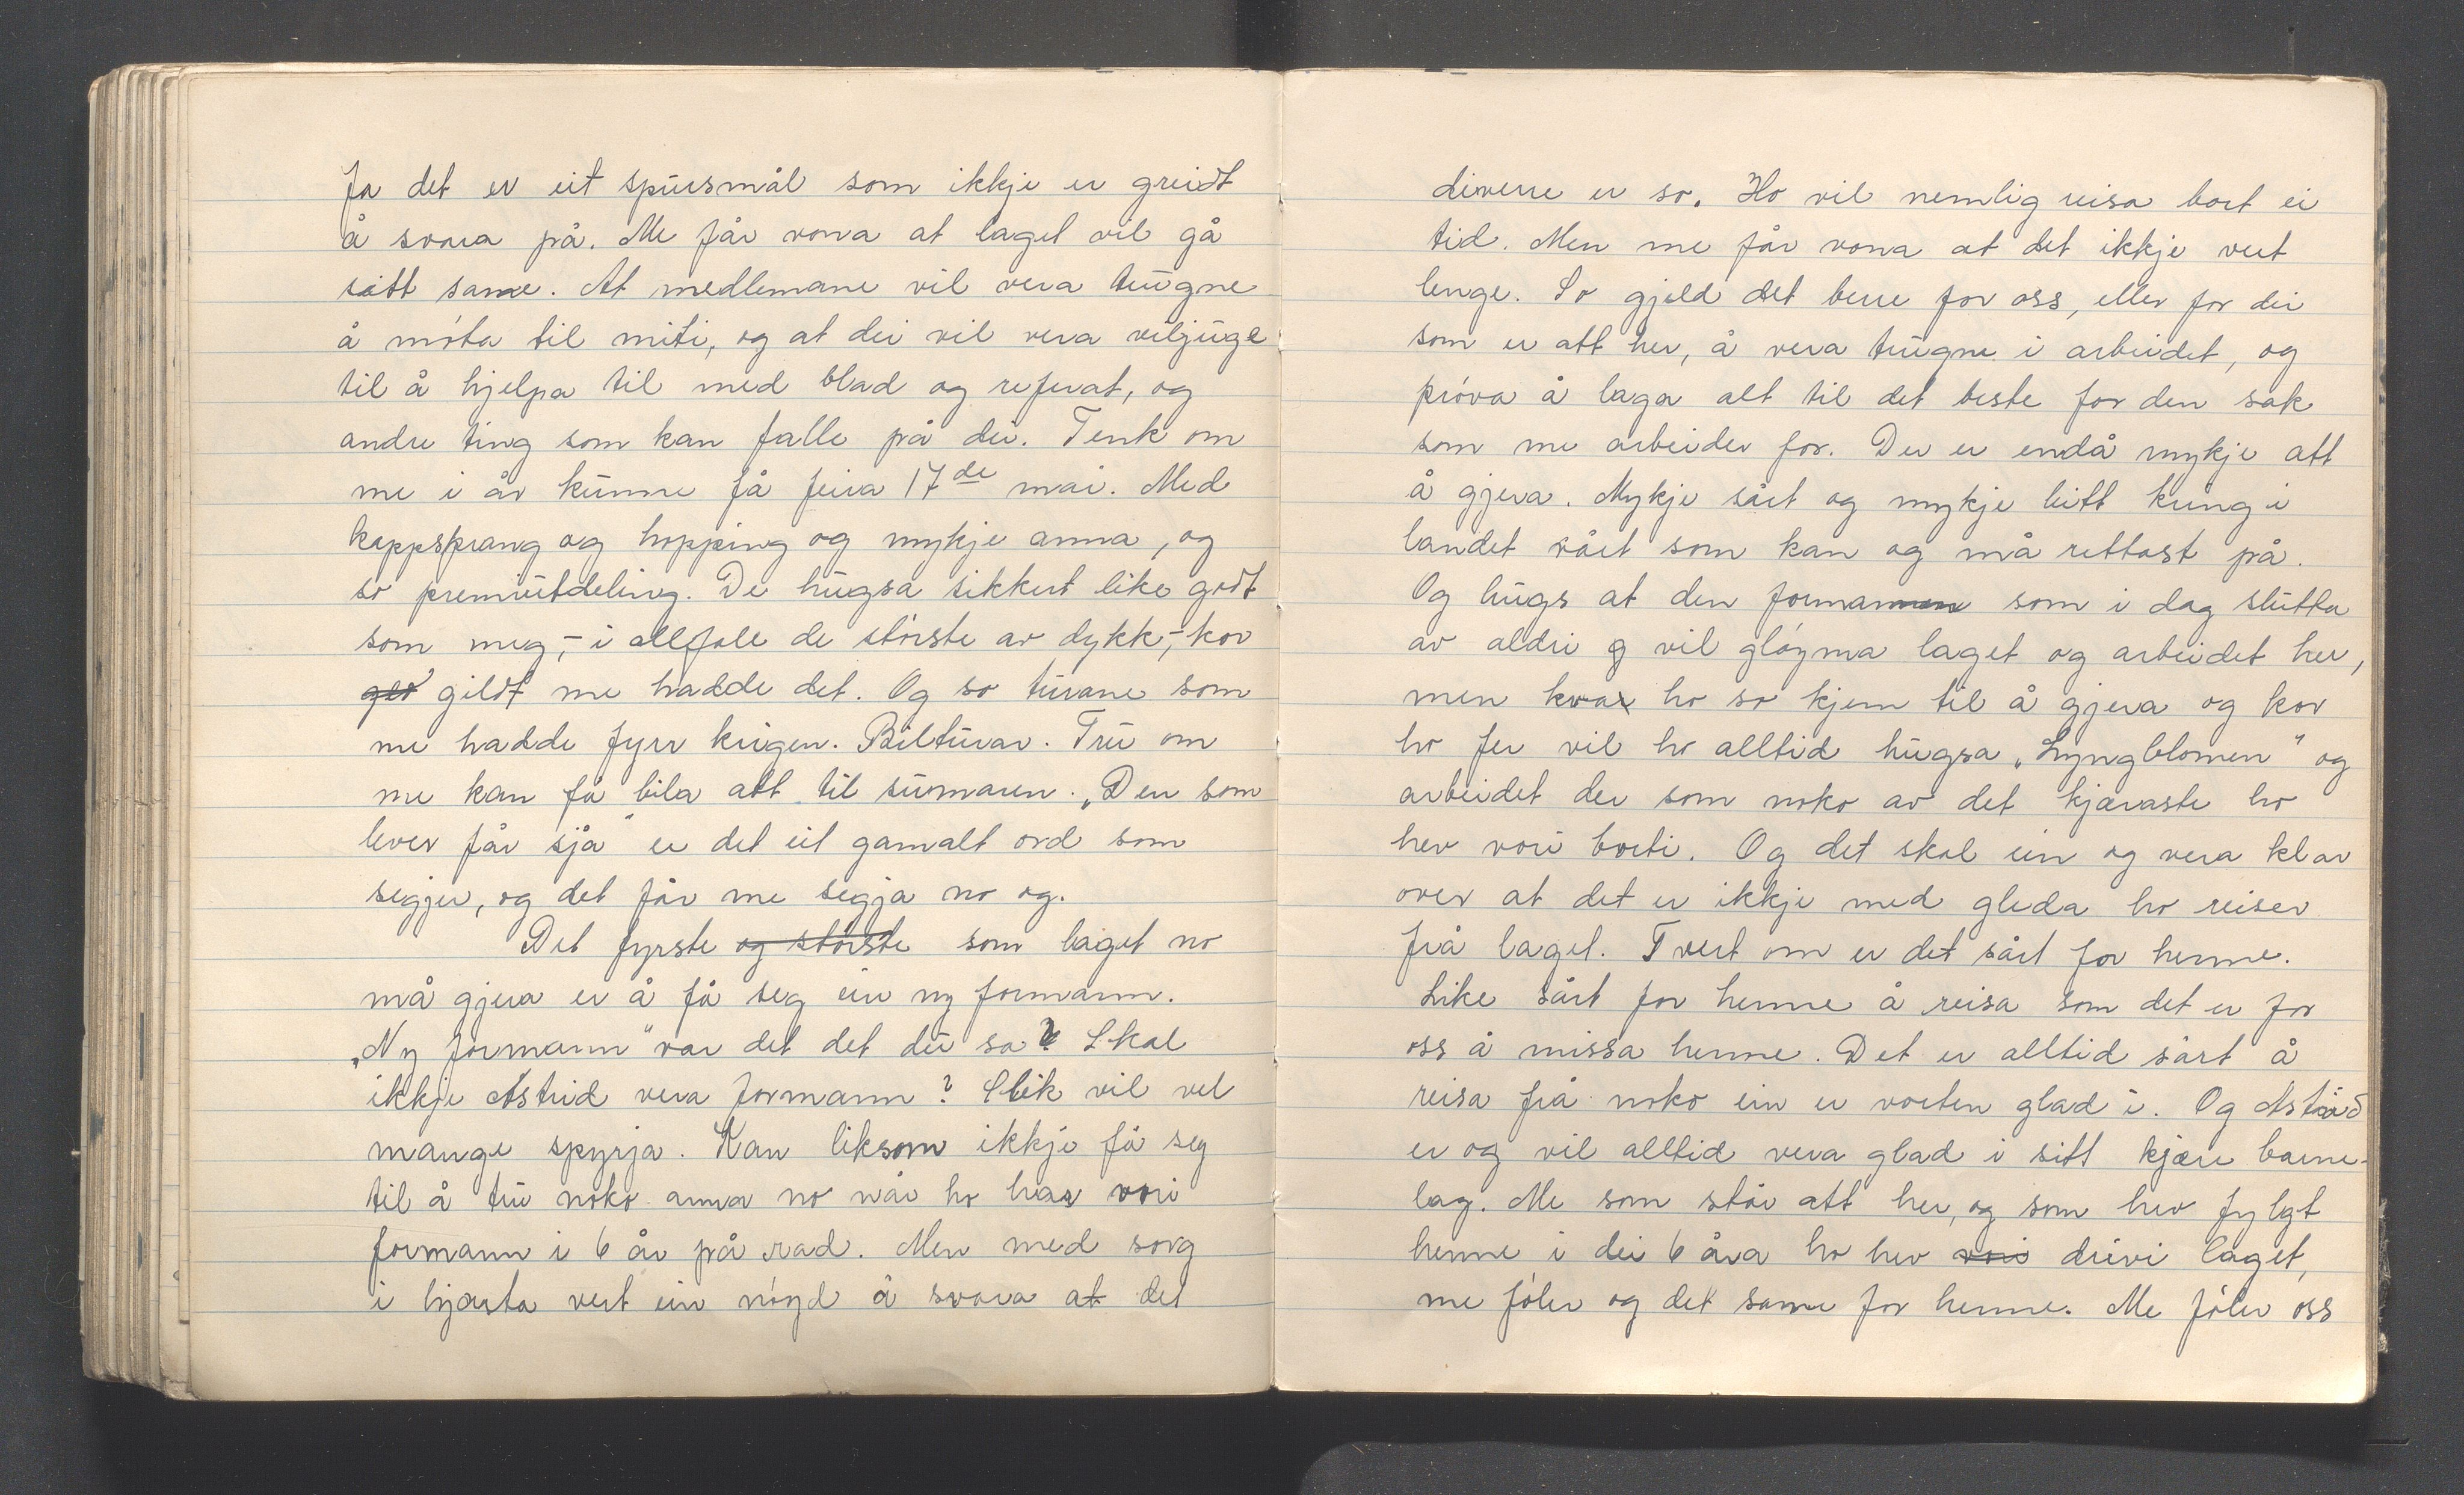 Ja det er eit spursmål som ikkje er greidt
å svara på. Me får vona at laget vil gå
sitt same. At medlemane vil vera trugne
å møta til miti, og at dei vil vera viljuge
til å hjelpa til med blad og referat, og
andre ting som kan falle på dei. Tenk om
me i år kunne få feira 17de mai. Med
kappsprang og hopping og mykje anna, og
so premieutdeling. De hugsa sikkert like godt
som meg,- i allfall de største av dykk,- kor
gildt me hadde det. Og so turane som
me hadde fyrr krigen. Bilturar. Tru om
me kan få bila att til sumaren. „Den som
lever får sjå" er det eit gamalt ord som
segjer, og det får me segja no og.
Det fyrste og største som laget no
må gjera er å få seg ein ny formann.
„Ny formann" var det det du sa? Skal
ikkje Astrid vera formann? Slik vil vel
mange spyrja. Kan liksom ikkje få seg
til å tru noko anna no når ho har vori
formann i 6 år på rad. Men med sorg
i hjarta vert ein nøyd å svara at det
diverre er so. Ho vil nemlig reisa bort ei
tid. Men me får vona at det ikkje vert
lenge. So gjeld det berre for oss, eller for dei
som er att her, å vera trugne i arbeidet, og
prøva å laga alt til det beste for den sak
som me arbeider for. Der er endå mykje att
å gjera. Mykje sårt og mykje leitt kring i
landet vårt som kan og må rettast på.
Og hugs at den formannen som i dag slutta
av aldri vil gløyma laget og arbeidet her,
men kva ho so kjem til å gjera og kor
ho fer vil ho alltid hugsa „Lyngblomen" og
arbeidet der som noko av det kjæraste ho
hev vori borti. Og det skal ein og vera klar
over at det er ikkje med gleda ho reiser
frå laget. Tvert om er det sårt for henne.
Like sårt for henne å reisa som det er for
oss å missa henne. Det er alltid sårt å
reisa frå noko ein er vorten glad i. Og Astrid
er og vil alltid vera glad i sitt kjære barne-
lag. Me som står att her, og som hev fylgt
henne i dei 6 åra ho hev vori drivi laget,
me føler og det same for henne. Me føler oss